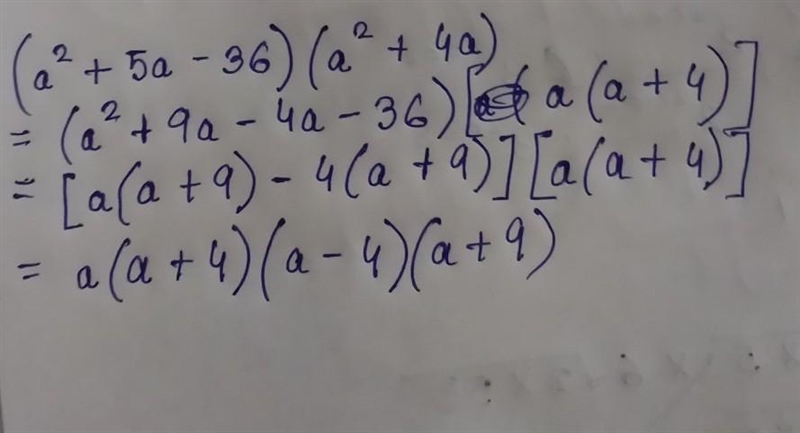 (a² + 5a - 36)(a² + 4a)
= (a² + 9a - 4a - 36)[a(a + 4)]
= [a(a + 9) - 4(a + 9)][a(a + 4)]
= a(a + 4)(a - 4)(a + 9)